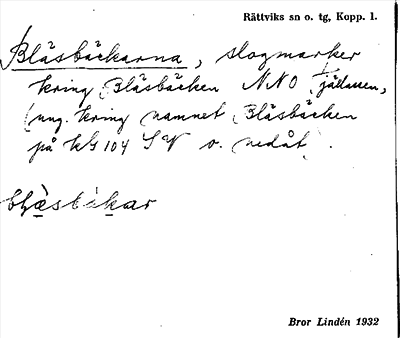 Rättviks sn o. tg, Kopp. l.
Blåsbäckarna, slogmarker
kring Blåsbäcken NNO fjällusen,
(ung. kring namnet Blåsbäcken
på kbl 104 SV o. nedåt).
Bror Lindén 1932